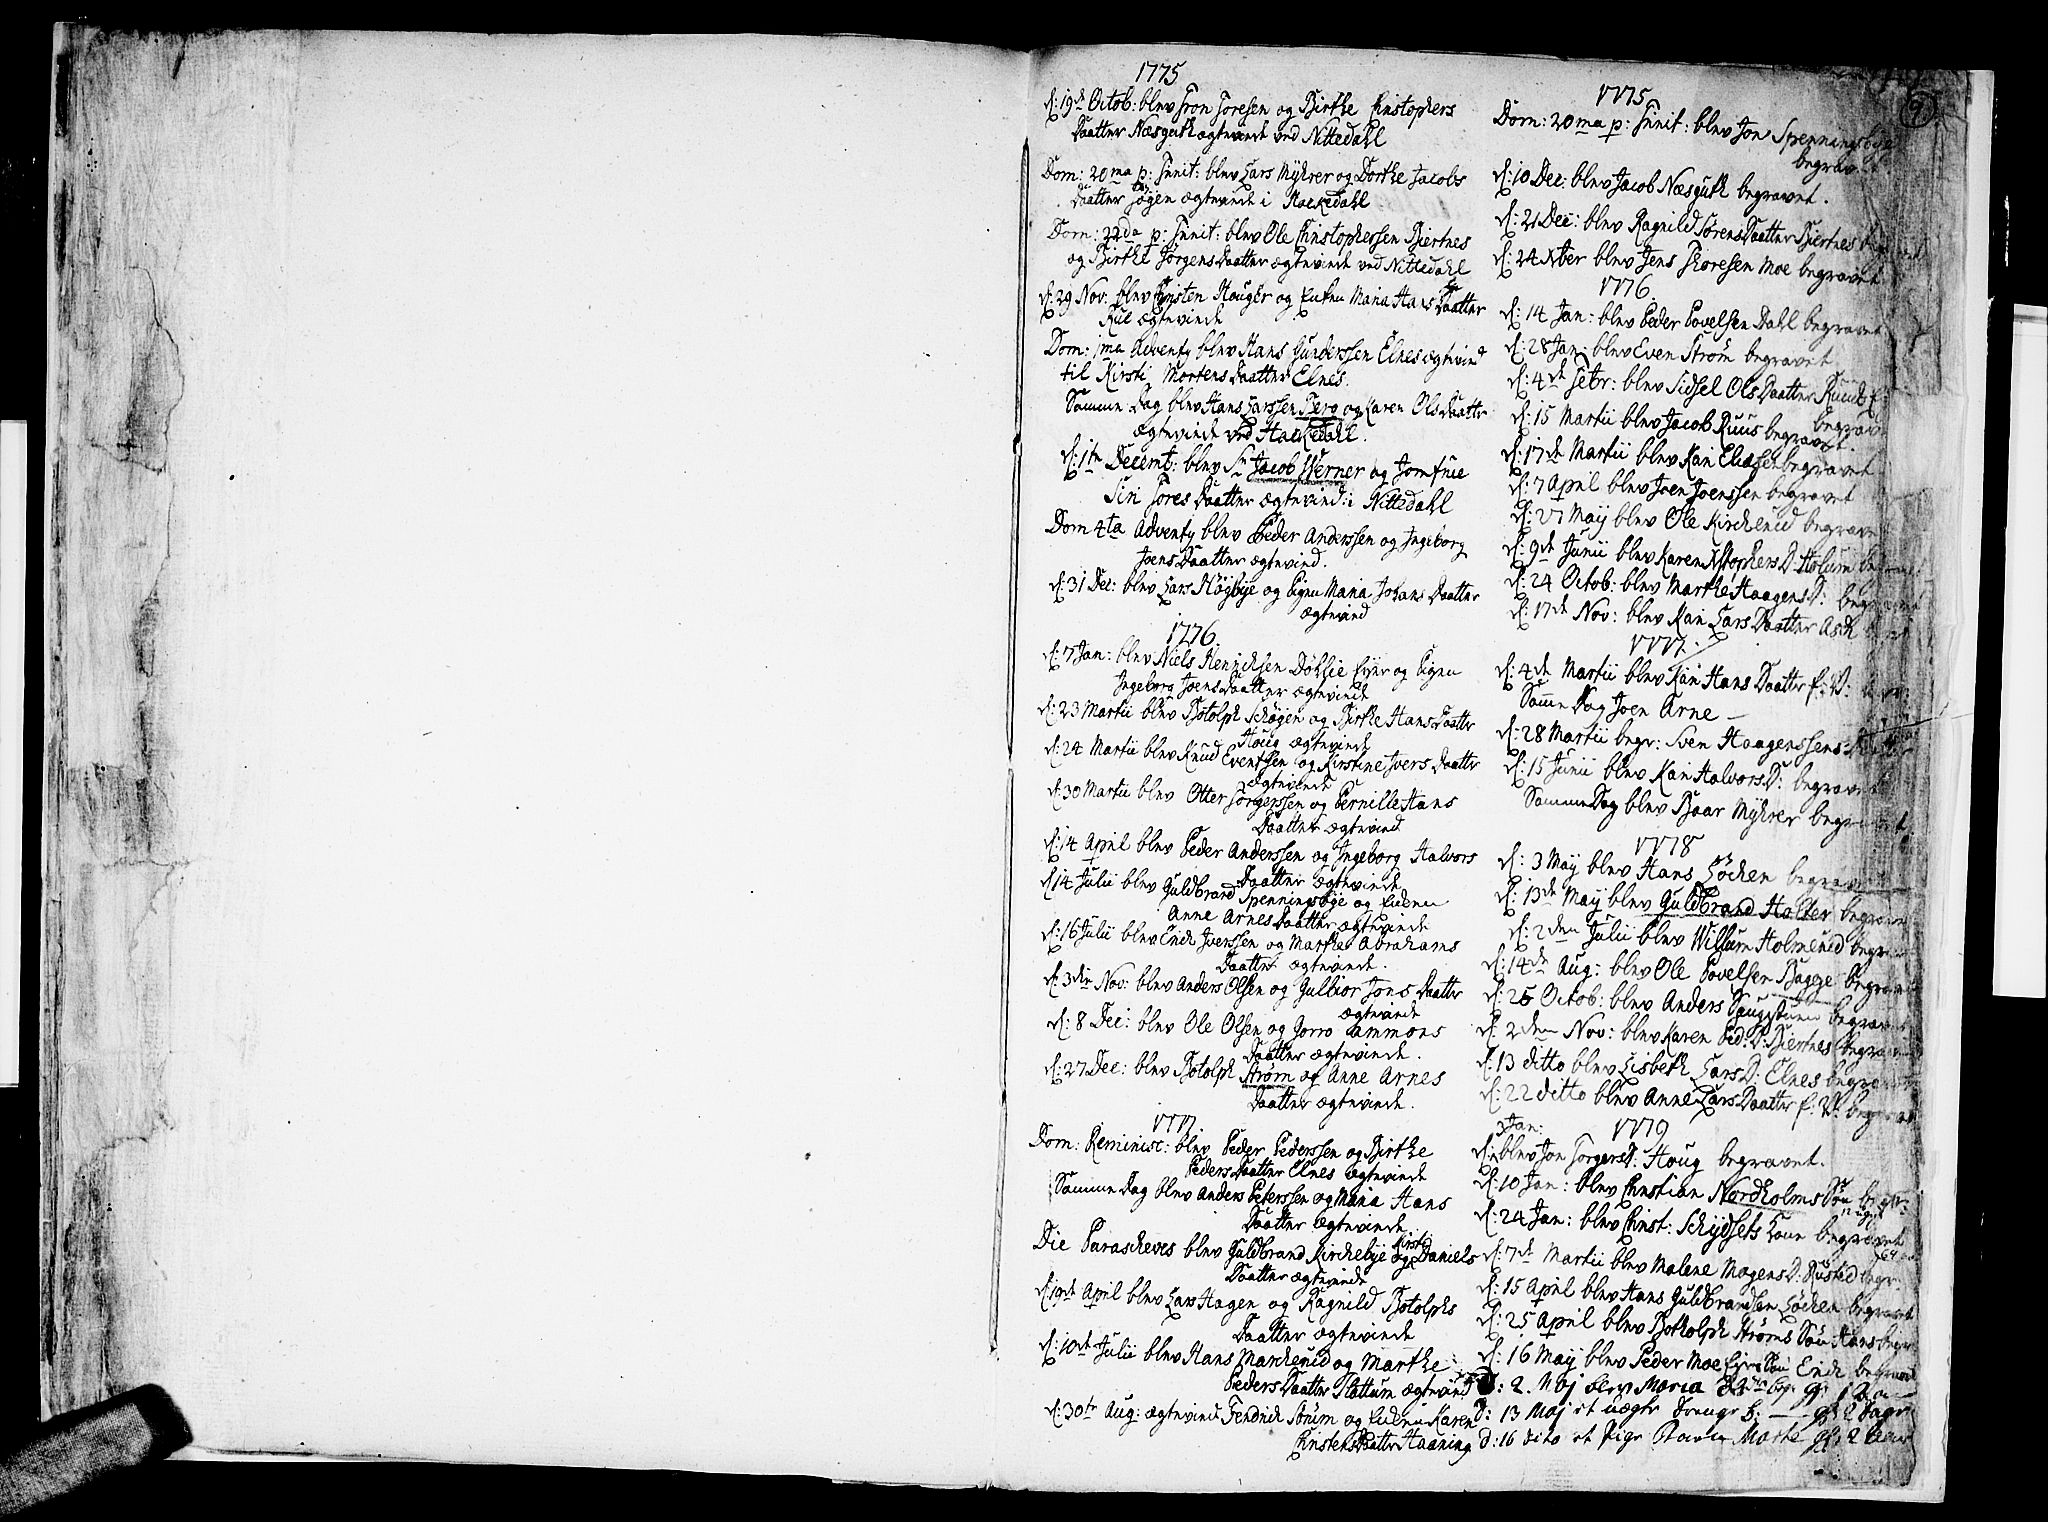 1775
d: 19de Octob: blev Tron Toresen og Birthe Christophers
Daatter Næsguth ægteviede ved Nittedahl
Dom: 20ma p: Trinit: blev Lars Myhrer og Dorthe Jacobs
Daatter ægteviede i Hackedahl
Dom: 22da p: Trinit: blev Ole Christophersen Biertnes
og Birthe Jörgens Daatter ægteviede ved Nittedahl
d: 29 Nov: blev Houger og Enken Maria Hans Daatter
Rul ægteviede
Dom: 1ma Adventy blev Hans Gunderssen Elnes ægtevied
til Kirsti Mortens Daatter Elnes.
Samme Dag blev Hans Larssen Berg og Karen Ols Daatter
ægteviede ved Hackedahl.
d: 1te Decemb: blev Sr Jacob Werner og Jomfrue
Siri Tores Daatter ægtevied: i Nittedahl
Dom 4ta Adventy blev Peder Anderssen og Ingeborg
Joens Daatter ægtevied.
d: 31 Dec: blev Lars Högbye og Pigen Maria Johans Daatter
ægtevied
1776.
d: 7 Jan: blev Niels Henrichsen Döhlie og Pigen
Ingeborg Joens Daatter ægteviede
d: 23 Martii blev Botolph Schögen og Birthe Hans Daatter
Houg ægteviede
d: 24 Martii blev Knud Eventsen og Kirstine Ivers Daatter
ægteviede
d: 30 Martii blev Otter Jörgerssen og Pernille Hans
Daatter ægtevied
d: 14 April blev Peder Anderssen og Ingeborg Halvors
Daatter ægteviede
d 14 Julii blev Guldbrand Spenningsbye og Enken
Anne Arnes Daatter ægteviede
d: 16 Julii blev Erich Iverssen og Marthe Abrahams
Daatter ægteviede.
d: 3die Nov: blev Anders Olsen og Gulbior Jons Daatter
ægteviede
d: 8 Dec: blev Ole Olsen og Jorro Ammons
Daatter ægteviede.
d: 27 Dec: blev Botolph Strøm og Anne Arnes
Daatter ægteviede.
1777.
Dom: Reminist: blev Peder Pederssen og Birthe
Peders Daatter Elnes ægteviede
Samme Dag blev Anders Peterssen og Maria Hans
Daatter ægteviede.
Die Parasceves blev Guldbrand Kirchebye og Kirsti Daniels
Daatter ægteviede
d: 19de April blev Lars Hagen og Ragnild Botolphs
Daatter ægteviede
d: 10de Julii blev Hans Marcherud og Marthe
Peders Daatter Slattum ægtevied
d: 30te Aug: ægtevied Fendrich Strøm og Enken Karen
Christens Daatter Haaning
1775.
Dom: 20ma p: Trinit: blev Jon Spenningsbye
begrav
d: 10 Dec: blev Jacob Næsguth begravet.
d: 21 Dec: blev Ragnild Sørens Daatter Biertnes
d: 24 Xber blev Jens Thoresen Moe begravet
1776.
d: 14 Jan: blev Peder Povelsen Dahl begravet
d: 28 Jan: blev Even Strøm begravet
d: 4de Febr: blev Sidsel Ols Daatter Ruud
begrav
d: 15 Martii blev Jacob Ruus begravet.
d: 17de Martii blev Kari Eliæsen begravet
d: 7 April blev Joen Joenssen begravet
d: 27 Maij blev Ole Kircherud begravet
d: 9de Junii blev Karen Xstophers D: Holum
d: 24 Octob: blev Marthe Haagens D:
d: 17de Nov: blev Kari Lars Daatter Asch
1777.
d: 4de Martii blev Kari Hans Daatter f: D:
Samme Dag Joen Arne —
d: 28 Martii begr: Sven Haagenssens
d: 15 Junii blev Kari Halvors D: begravet
Samme Dag blev Baar Myhrer begravet
1778
d: 3 May blev Hans Löchen begravet
d: 13de May blev Guldbrand Holter begravet
d: 2den Julii blev Willum Holmerud begravet
d: 14de Aug: blev Ole Povelsen Bagge begravet
d: 25 Octob: blev Anders Saugstuen begravet
d: 2den Nov: blev Karen Ped: D: Biertnes begravet
d: 13 ditto blev Lisbeth Lars D: Elnes begravet
d: 22 ditto blev Anne Lars Daatter f: D: begravet
3 Jan: 1779
d: blev Jon Jörgens D: Houg begravet.
d: 10 Jan: blev Christian Nordholms Søn
d: 24 Jan: blev Christ: Schydsets Kone begravet
d: 7de Martii blev Malene Mogens D: Rusted begr.
d: 15 April blev Hans Guldbrandsen Löchen begravet
d: 25 April blev Botholph Strøms Søn Hans begr
d: 16 Maij blev Peder Moe Søn Erich begravet
d: 2. Maj blev Maria
d: 13 Maj et uægte Drenge b: — 2 Dage
d: 16 dito et Pige Barn Marte